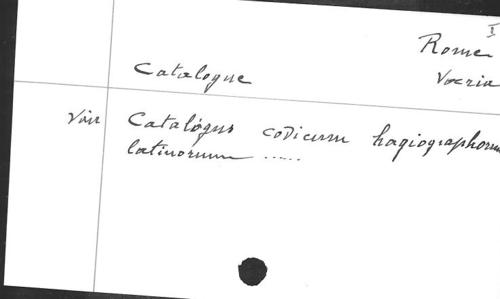 I
Rome
Catalogue
Voir Catalogus codicum hagiographorum
latinorum .....